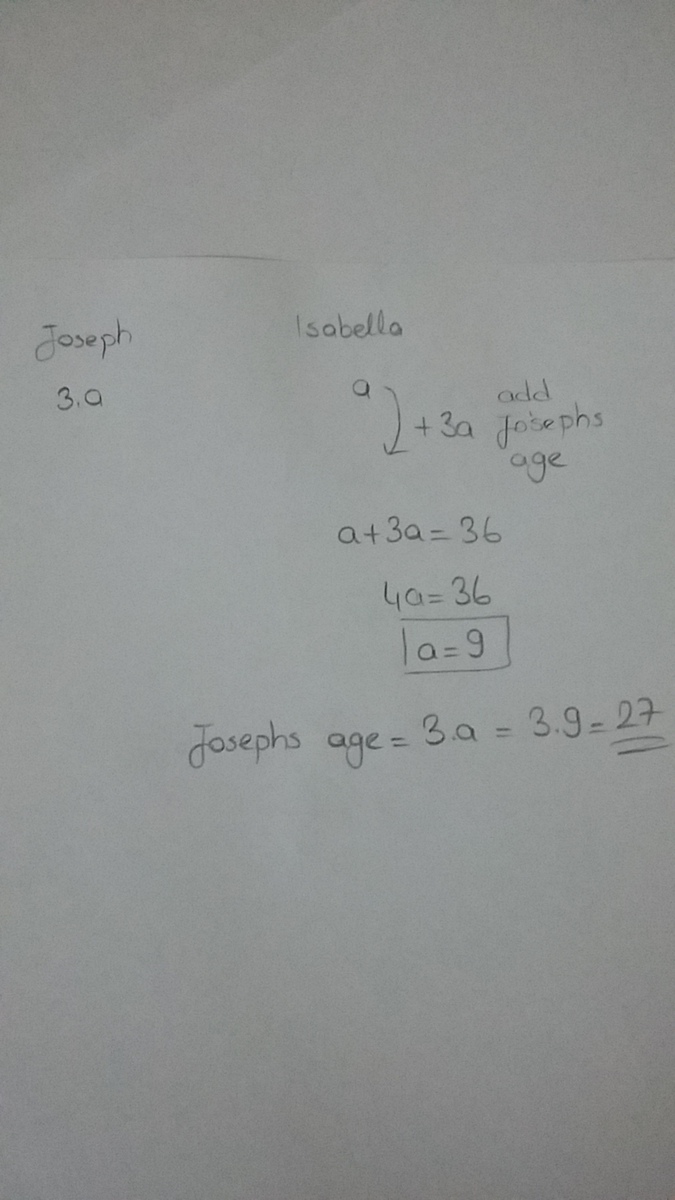 Joseph
3.a
Isabella
a
+3a
add
Josephs
age
a+3a=36
4a=36
a=9
Josephs age = 3.a = 3.9 = 27